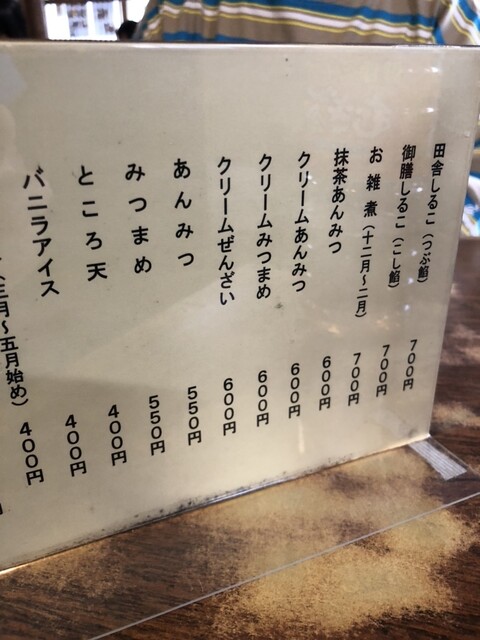 田舎しるこ（つぶ餡） 700円
御膳しるこ（こし餡） 700円
お雑煮（十二月～二月） 700円
抹茶あんみつ 600円
クリームあんみつ 600円
クリームみつまめ 600円
クリームぜんざい 600円
あんみつ 550円
みつまめ 550円
ところ天 400円
バニラアイス 400円
（三月～五月始め） 400円